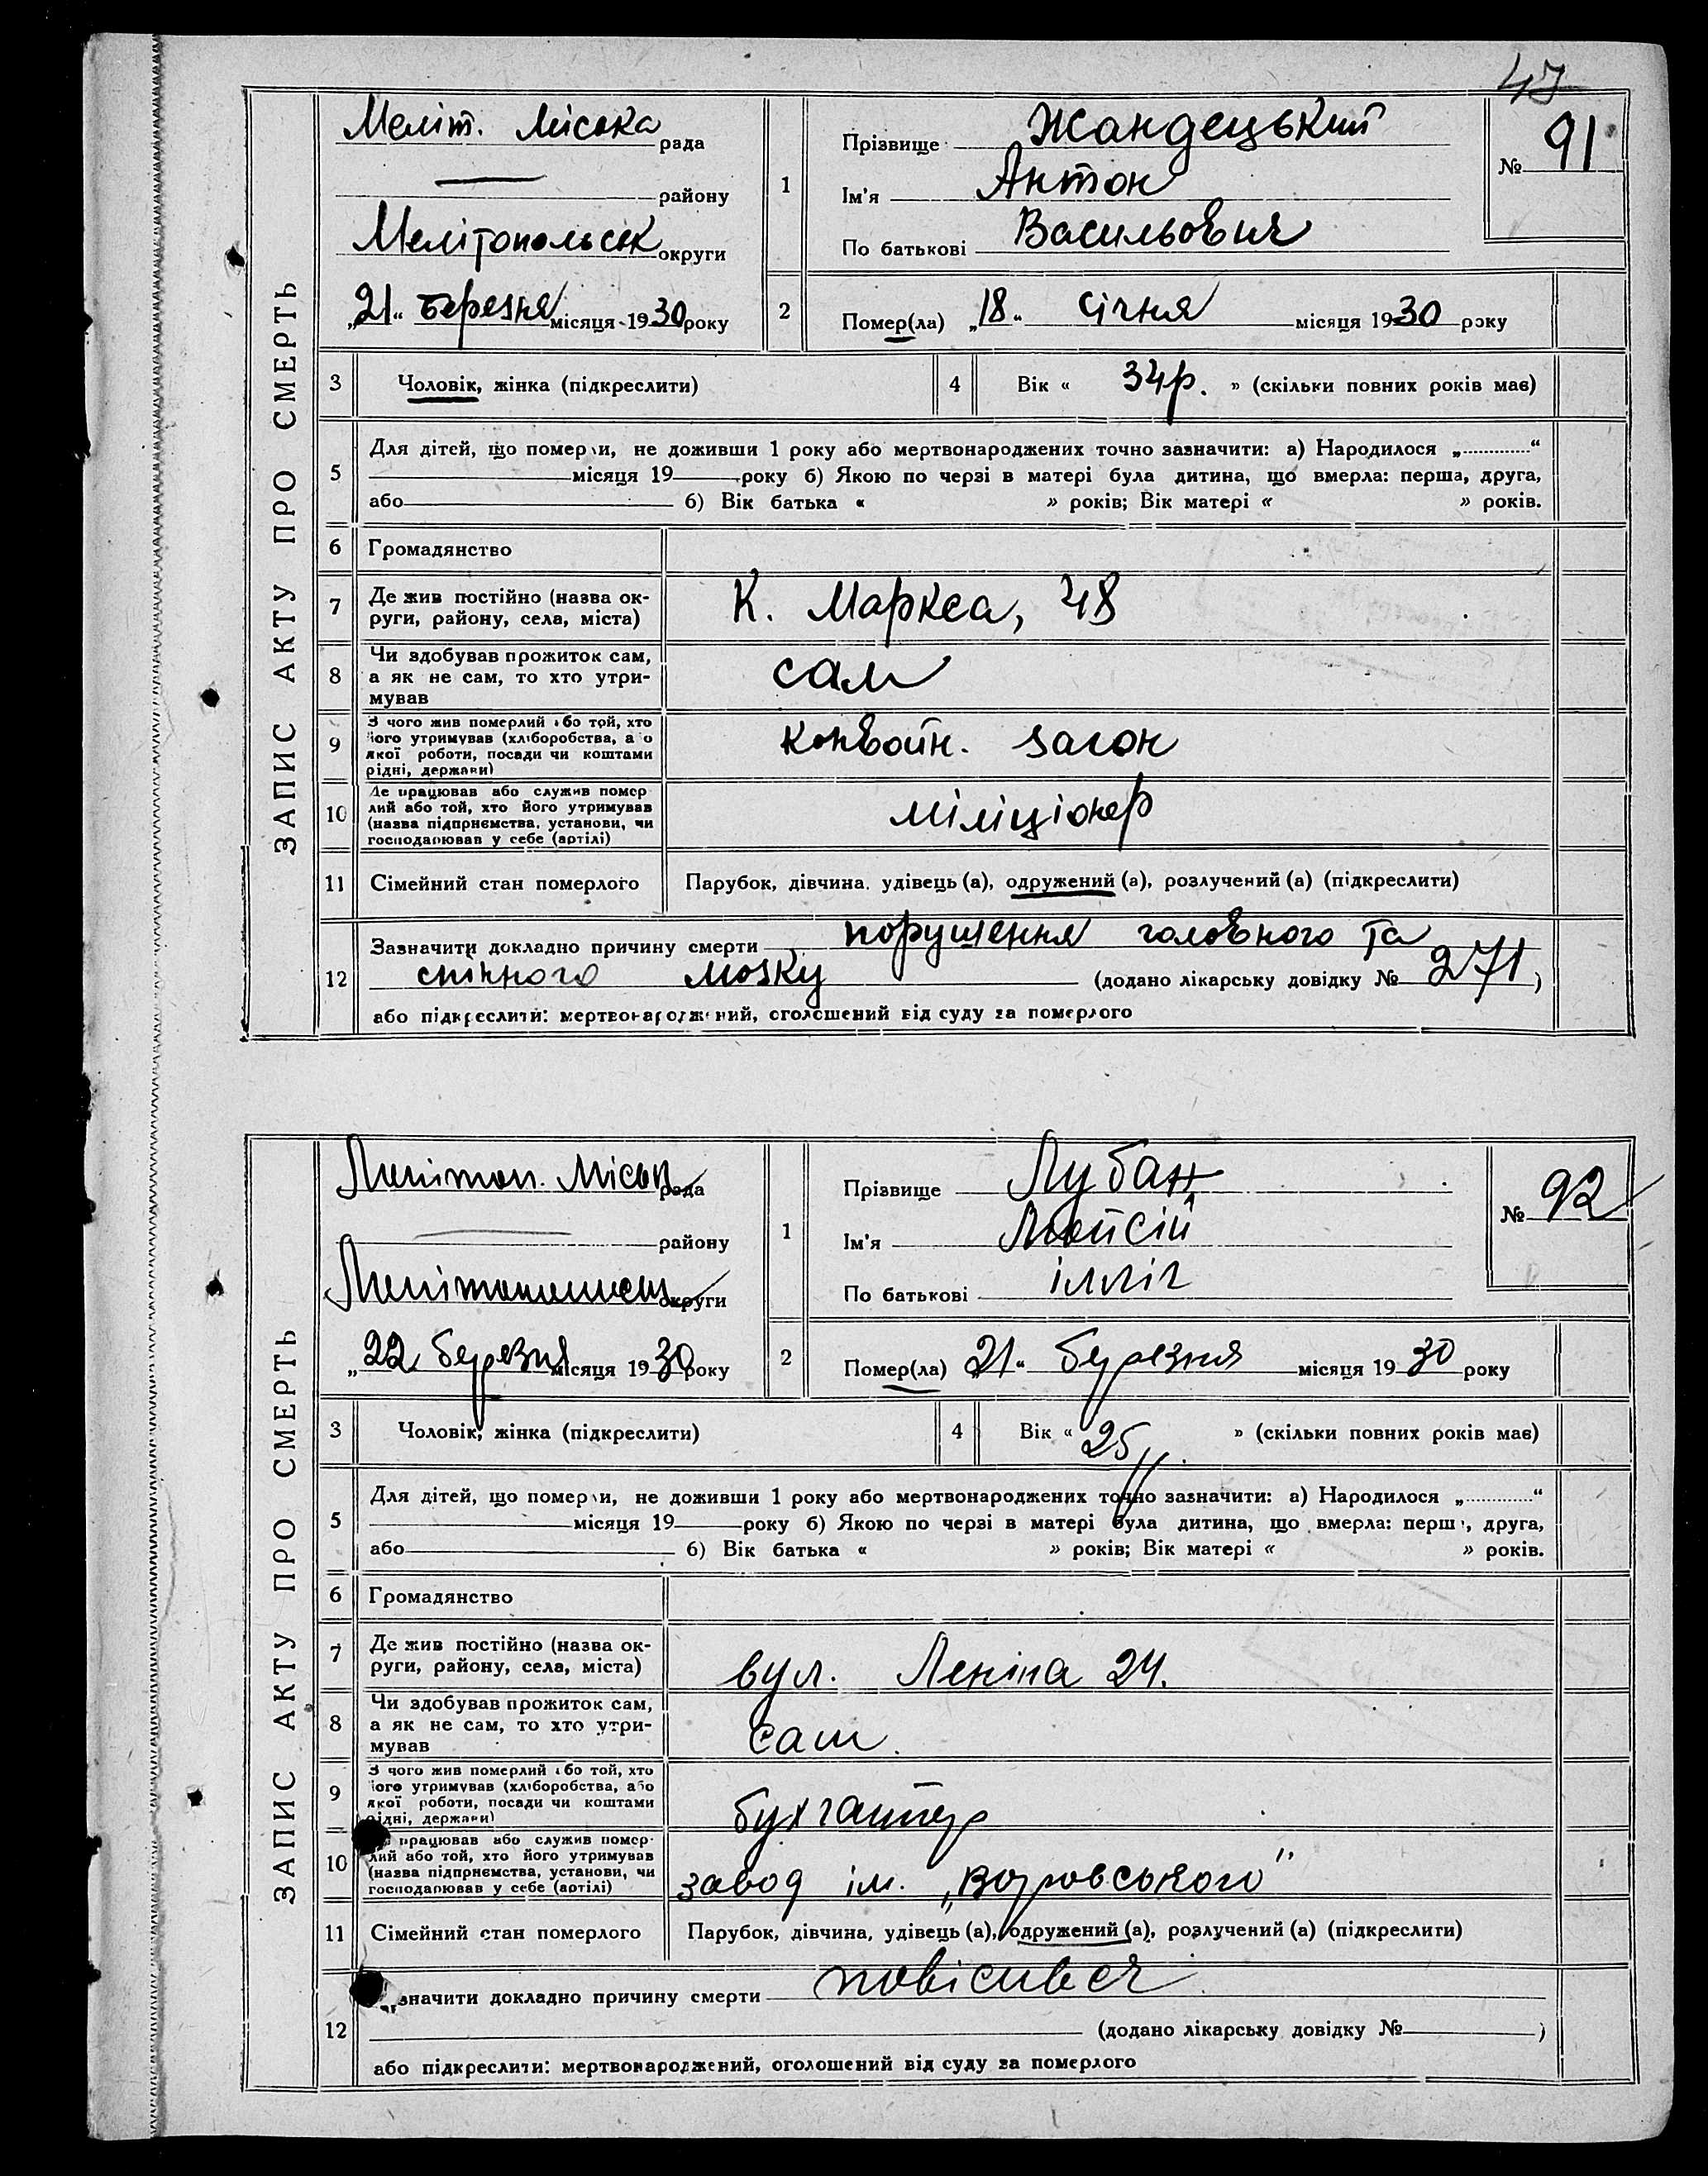 47
ЗАПИС АКТУ ПРО СМЕРТЬ
Меліт. Міська рада
району
Мелітопольськ округи
„21“ березня місяця 1930 року
1
Прізвище Жандецький
Ім'я Антон
По батькові Васильович
№ 91
2
Помер(ла) „18“ січня місяця 1930 року
3 Чоловік, жінка (підкреслити)
4 Вік « 34р. » (скільки повних років має)
5
Для дітей, що померли, не доживши 1 року або мертвонароджених точно зазначити: а) Народилося „............“
місяця 19 року б) Якою по черзі в матері була дитина, що вмерла: перша, друга,
або б) Вік батька « » років; Вік матері « » років.
6 Громадянство
7 Де жив постійно (назва ок-
руги, району, села, міста)
К. Маркса, 48
8 Чи здобував прожиток сам,
а як не сам, то хто утри-
мував
сам
9 З чого жив померлий або той, хто
його утримував (хліборобства, або
якої роботи, посади чи коштами
рідні, держави)
конвойн. загон
10 Де працював або служив помер
лий або той, хто його утримував
(назва підприємства, установи, чи
господарював у себе (артілі)
міліціонер
11 Сімейний стан померлого Парубок, дівчина, удівець (а), одружений (а), розлучений (а) (підкреслити)
12
Зазначити докладно причину смерти порушення головного та
спінного мозку (додано лікарську довідку № 271)
або підкреслити: мертвонароджений, оголошений від суду за померлого
ЗАПИС АКТУ ПРО СМЕРТЬ
Мелітоп. Міськ рада
району
округи
„22 березня місяця 1930 року
1
Прізвище Лубан
Ім'я Мойсій
По батькові ілліч
№ 92
2
Помер(ла) „21“ березня місяця 1930 року
3 Чоловік, жінка (підкреслити)
4 Вік « 25 р. » (скільки повних років має)
5
Для дітей, що померли, не доживши 1 року або мертвонароджених точно зазначити: а) Народилося „............“
місяця 19 року б) Якою по черзі в матері була дитина, що вмерла: перша, друга,
або б) Вік батька « » років; Вік матері « » років.
6 Громадянство
7 Де жив постійно (назва ок-
руги, району, села, міста)
вул. Леніна 24.
8 Чи здобував прожиток сам,
а як не сам, то хто утри-
мував
сам.
9 З чого жив померлий або той, хто
його утримував (хліборобства, або
якої роботи, посади чи коштами
рідні, держави)
бухгалтер
10 працював або служив помер-
лий або той, хто його утримував
(назва підприємства, установи, чи
господарював у себе (артілі)
завод ім. „Воровського"
11 Сімейний стан померлого Парубок, дівчина, удівець (а), одружений (а), розлучений (а) (підкреслити)
12
Зазначити докладно причину смерти повісився
(додано лікарську довідку № )
або підкреслити: мертвонароджений, оголошений від суду за померлого